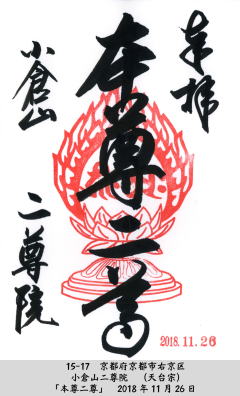 奉拝
本尊二尊
小倉山
二尊院
2018.11.26
15-17 京都府京都市右京区
小倉山二尊院 (天台宗)
「本尊二尊」 2018年11月26日